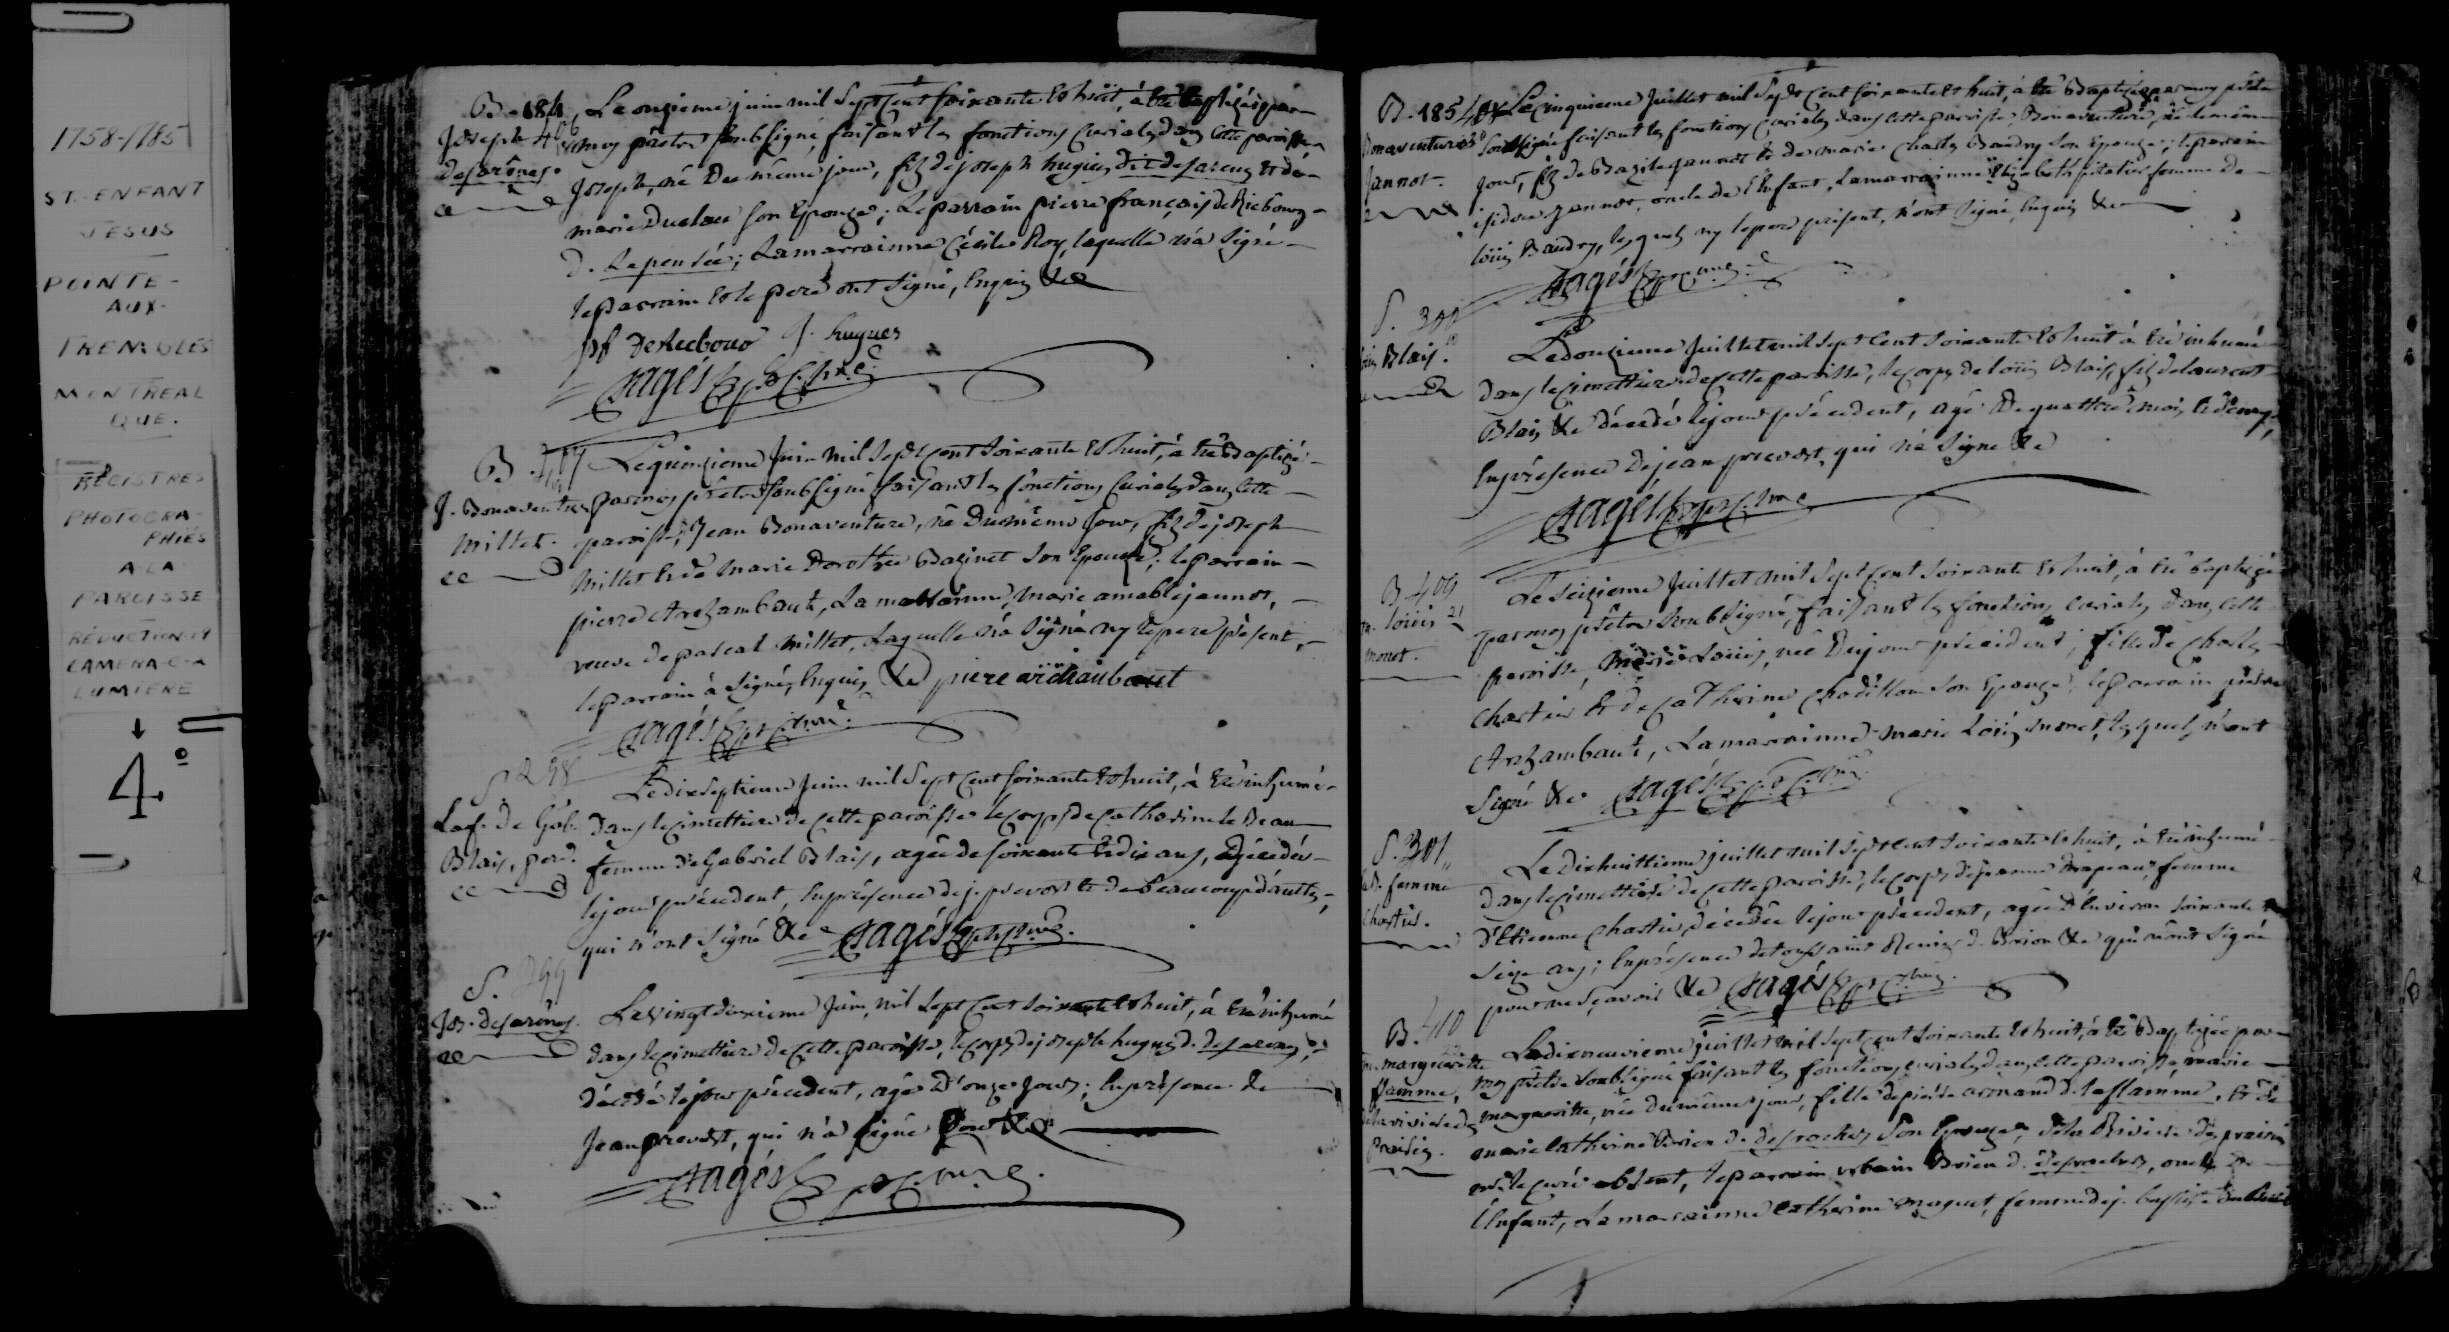 1758-1785
ST. ENFANT
JESUS
POINTE-
AUX-
TREMBLES
MONTREAL
QUE.
REGISTRES
PHOTOGRA-
PHIÉS
A LA
PAROISSE
RÉDUCTION 14
CAMERA C-2
LUMIÈRE
4°
B. 184
406
Joseph
desarênes.
Le onzieme juin mil Sept Cent Soixante et huit, à été baptizé par
moy prêtre Soubsigné, faisant les fonctions Curiales dans cette paroisse
Joseph, né Du même jour, fils de joseph hugues dit desarens et de
marie Duclau Son Epouze; Le parrain pierre françois de Riebourg
D. Lapensée; La marrainne Cécile Roy, laquelle n'a Signé
le parrain et le pere ont Signé, Enquis &c
pf J. hugues
Sagés
B. 407
J. Bonaventure
Millet.
Le quinzieme Juin Mil Sept Cent Soixante et huit, à été Baptizé
par moy prêtre Soubsigné faisant les fonctions Curiales dans cette
paroisse, Jean Bonaventure, né Du même Jour, fils de joseph
Millet et de Marie Dorothée Bazinet Son Epouze; le parrain
pierre Archambault, La marrainne, Marie amable jannot,
veuve de pascal Millet, Laquelle n'a Signé ny le pere présent,
le parrain à Signé, Enquis &c piere archaubaut
Sagés
S. 298
La f. de Gab.
Blais,
Le dix Septieme Juin mil Sept Cent Soixante et huit, à été inhumé
Dans le cimettiere de cette paroisse le corps de Catherine le Beau
femme de Gabriel Blais, agée de soixante et dix ans, décedée
le jour précedent, En présence de j. prevost et de beaucoup d'autres,
qui n'ont Signé &c Sagés
S. 299
Jos. desarênes.
Le vingt deuxieme Juin, mil Sept Cent Soixante et huit, à été inhumé
dans le cimettiere de cette paroisse, le corps de joseph hugues d. desarens,
décédé le jour précedent, agé D'onze Jours; En présence de
Jean prevost, qui n'a Signé &c
Sagés
B. 185
Bonaventure
Jannot.
Le cinquieme Juillet mil Sept Cent Soixante et huit, à été Baptizé par moy prêtre
Soubsigné faisant les fonctions Curiales dans cette paroisse, Bonaventure, né le même
Jour, fils de Bazile jannot et de marie Charles Baudry Son Epouze; le parrain
isidore jannot, oncle de l'Enfant, La marrainne Elizabeth femme de
Loüis Baudry, lesquels ny le pere présent, n'ont Signé, Enquis &c
Sagés
S. 300
Loüis Blais.
Le douzieme Juillet mil Sept Cent Soixante et huit à été inhumé
dans le cimettiere de cette paroisse, le corps de Loüis Blais, fils de Laurent
Blais &c décédé le jour précedent, agé De quattre mois et demy,
En présence De jean prevost, qui n'a Signé &c
Sagés
B. 409
m. Loüis 21
monet.
Le Seizieme Juillet mil Sept Cent Soixante et huit, à été baptizé
par moy prêtre Soubsigné, faisant les fonctions curiales dans cette
paroisse, Loüis, né Du jour précedent; fille de Charles
Chartié et de Catherine Chatillon Son Epouze, le parrain pierre
Archambault, La marrainne marie Loüis monet, lesquels n'ont
Signé &c Sagés
S. 301
La femme
Chartié.
Le Dix huittieme juillet mil Sept Cent Soixante et huit, à été inhumé
dans le cimettiere de cette paroisse, le corps de jeanne Drapeau, femme
D'Etienne Chartié décédée le jour précedent, agée D'Environ soixante
Seize ans; En présence de toussaint d. Brion &c qui n'ont Signé
pour ne sçavoir &c Sagés
B. 410
marguerite
flamme,
de la riviere des
prairies.
Le dix neuvieme juillet mil Sept Cent Soixante et huit, à été Baptizée par
moy prêtre Soubsigné faisant les fonctions curiales dans cette paroisse, marie
marguerite, née Du même jour, fille de pierre armand d. Laflamme, et de
marie Catherine Brien d. desrochers Son Epouze, de la Riviere des prairies
mr le curé absent, le parrain urbain Brien d. desrochers, oncle de
l'Enfant, La marrainne Catherine maguet, femme de j. baptiste